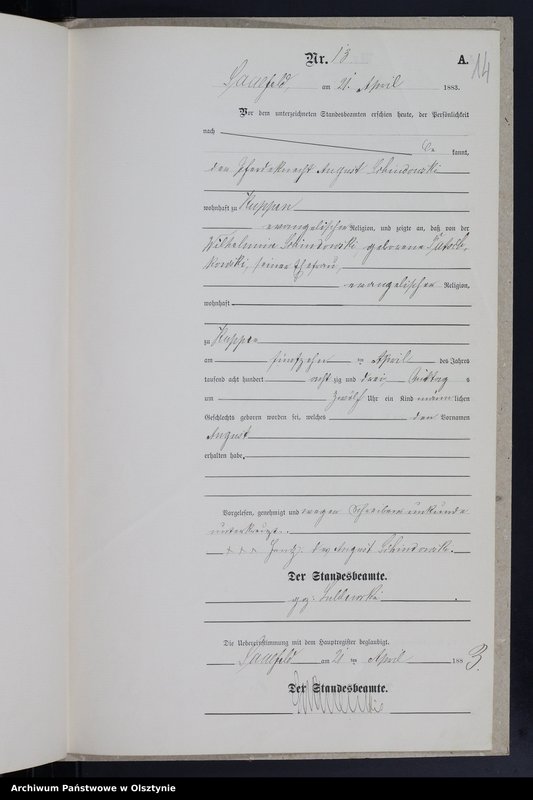 Nr. 13
A.
14
Saalfeld, am 21 April 1883.
Vor dem unterzeichneten Standesbeamten erschien heute, der Persönlichkeit
nach
be kannt,
den Pferdeknecht August
wohnhaft zu Kuppen
evangelischer Religion, und zeigte an, daß von der
Wilhelmine geborene
seiner Ehefrau,
evangelischer Religion,
wohnhaft
zu Kuppen
am fünfzehn ten April des Jahres
tausend acht hundert acht zig und drei Mittag s
um zwölf Uhr ein Kind männ lichen
Geschlechts geboren worden sei, welches den Vornamen
August
erhalten habe.
Vorgelesen, genehmigt und wegen Schreibensunkunde
unterkreuzt.
+ + + Handz. des August
Der Standesbeamte.
Die Uebereinstimmung mit dem Hauptregister beglaubigt.
Saalfeld am 21 ten April 188 3.
Der Standesbeamte.
Archiwum Państwowe w Olsztynie